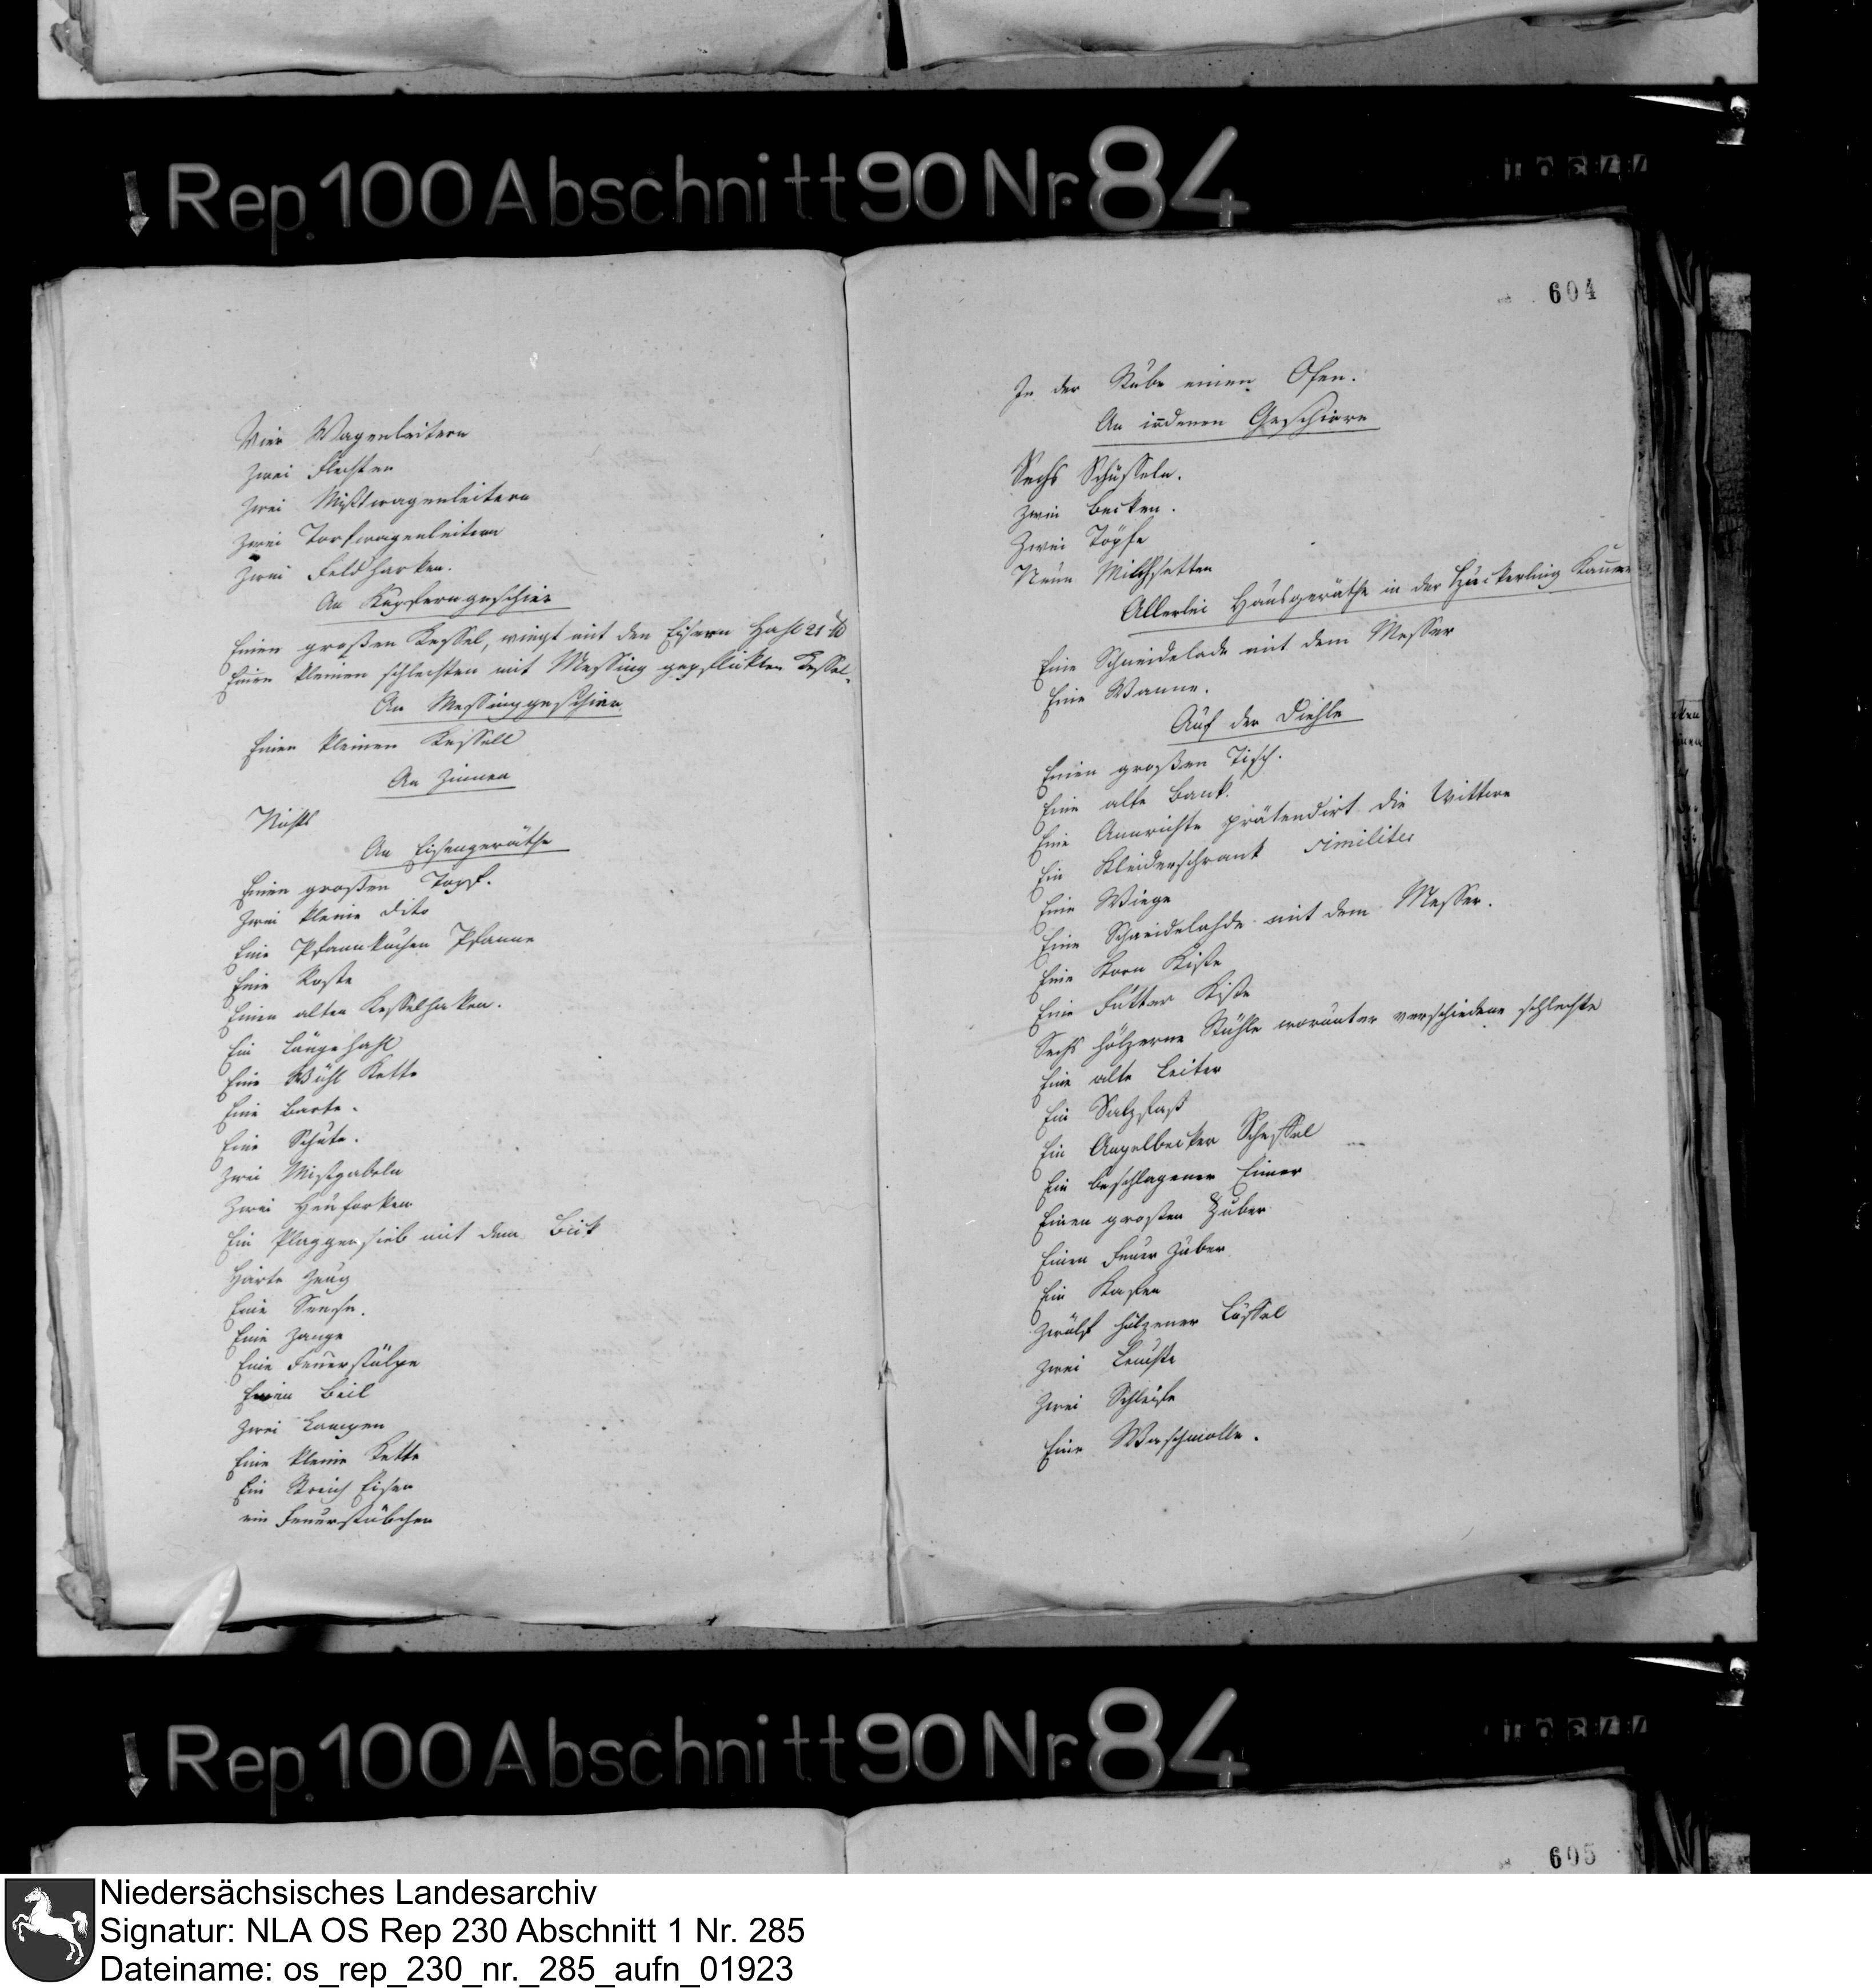 Rep. 100 Abschnitt 90 Nr. 84
Vier Wagenleitern
Zwei Flechten
Zwei Mistwagenleitern
Zwei Torfwagenleitern
Zwei Feld Harken.
An Kupferngeschier
Einen großen Kessel, wiegt mit den Eisern Hahl 21 ℔
Einen kleinen schlechten mit Messing gepflickten Kessel.
An Messinggeschirr
Einen kleinen Kessell
An Zinnen
Nichts
An Eisengeräthe
Einen großen Topf.
Zwei kleine dito
Eine Pfannkuchen Pfanne
Eine Roste
Einen alten Kesselhaken.
Ein Lange Hahl
Eine Kette
Eine Barte.
Eine Schute.
Zwei Mistgabeln
Zwei Heuforken
Ein Plaggensieb mit dem
Harte Zeug
Eine Sense.
Eine Zange
Eine Feuerstülpe
Einen Beil
Zwei Lampen
Eine kleine Kette
Ein Streich Eisen
ein Feuerstübchen
604
In der Stube einen Ofen.
An irdenen Geschirre
Sechs Schüsseln.
Zwei Becken.
Zwei Töpfe
Neun Milchsetten
Allerlei Hausgeräthe in der Häckerling Kamer
Eine Schneidelade mit dem Messer
Eine Wanne.
Auf der Diehle
Einen großen Tisch.
Eine alte Bank.
Eine Annrichte prätendirt die Wittwe
Ein Kleiderschrank similiter
Eine Wiege
Eine Schneidelahde mit dem Messer.
Eine Korn Kiste
Eine Futter Kiste
Sechs hölzerne Stühle worunter verschiedene schlechte
Eine alte Leiter
Ein Salzfaß
Ein Angelbecker Scheffel
Ein beschlagener Eimer
Einen großen Zuber
Einen Feuer Zuber
Ein Kasten
Zwölf hölzener Löffel
Zwei Leuchte
Zwei
Eine Waschmolle.
Rep. 100 Abschnitt 90 Nr. 84
605
Niedersächsisches Landesarchiv
Signatur: NLA OS Rep 230 Abschnitt 1 Nr. 285
Dateiname: os_rep_230_nr._285_aufn_01923